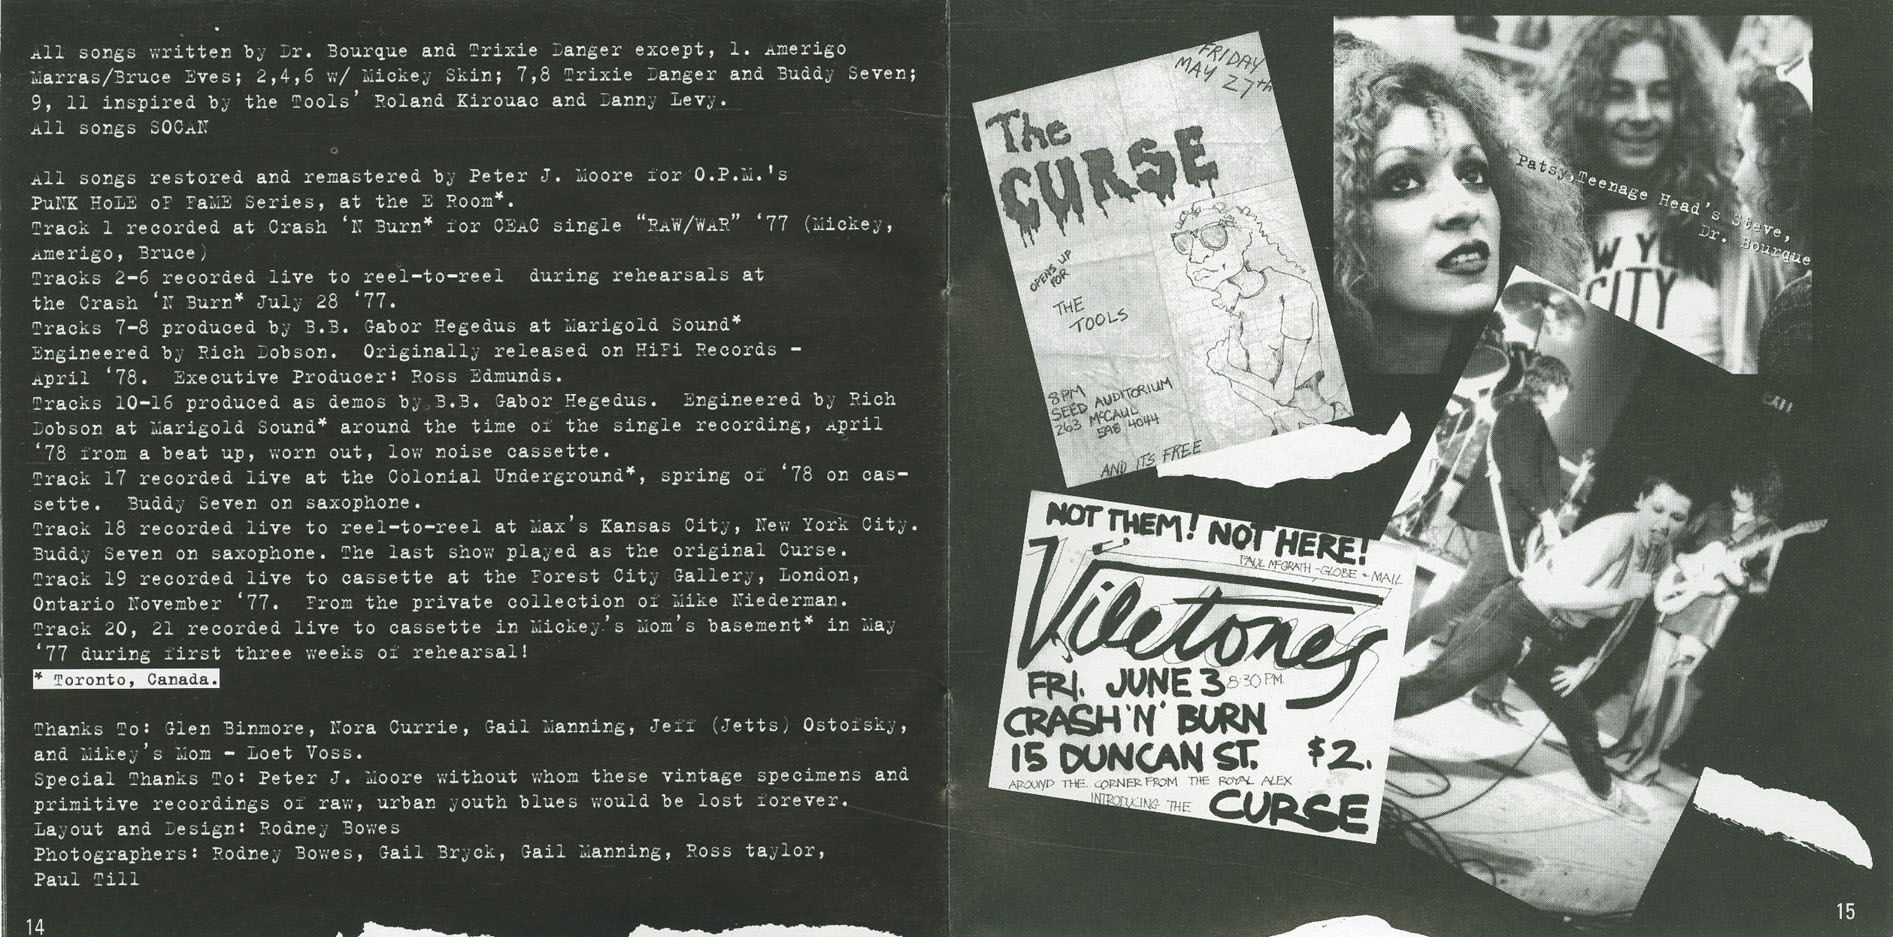 All songs written by Dr. Bourque and Trixie Danger except, 1. Amerigo
Marras/Bruce Eves; 2,4,6 w/ Mickey Skin; 7,8 Trixie Danger and Buddy Seven;
9, 11 inspired by the Tools' Roland Kirouac and Danny Levy.
All songs SOCAN
All songs restored and remastered by Peter J. Moore for O.P.M.'s
PuNK HoLE oF FaME Series, at the E Room*.
Track 1 recorded at Crash 'N Burn* for CEAC single "RAW/WAR" '77 (Mickey,
Amerigo, Bruce)
Tracks 2-6 recorded live to reel-to-reel during rehearsals at
the Crash 'N Burn* July 28 '77.
Tracks 7-8 produced by B.B. Gabor Hegedus at Marigold Sound*
Engineered by Rich Dobson. Originally released on HiFi Records -
April '78. Executive Producer: Ross Edmunds.
Tracks 10-16 produced as demos by B.B. Gabor Hegedus. Engineered by Rich
Dobson at Marigold Sound* around the time of the single recording, April
'78 from a beat up, worn out, low noise cassette.
Track 17 recorded live at the Colonial Underground*, spring of '78 on cas-
sette. Buddy Seven on saxophone.
Track 18 recorded live to reel-to-reel at Max's Kansas City, New York City.
Buddy Seven on saxophone. The last show played as the original Curse.
Track 19 recorded live to cassette at the Forest City Gallery, London,
Ontario November '77. From the private collection of Mike Niederman.
Track 20, 21 recorded live to cassette in Mickey's Mom's basement* in May
'77 during first three weeks of rehearsal!
* Toronto, Canada.
Thanks To: Glen Binmore, Nora Currie, Gail Manning, Jeff (Jetts) Ostofsky,
and Mikey's Mom - Loet Voss.
Special Thanks To: Peter J. Moore without whom these vintage specimens and
primitive recordings of raw, urban youth blues would be lost forever.
Layout and Design: Rodney Bowes
Photographers: Rodney Bowes, Gail Bryck, Gail Manning, Ross taylor,
Paul Till
14
FRIDAY
MAY 27TH
The
CURSE
OPENS UP
FOR
THE
TOOLS
8PM
SEED AUDITORIUM
263 McCAUL
598 4044
AND ITS FREE
Patsy, Teenage Head's Steve,
Dr. Bourque
CITY
EXIT
NOT THEM! NOT HERE!
PAUL McGRATH - GLOBE + MAIL
Viletones
FRI. JUNE 3 8:30 PM.
CRASH 'N' BURN
15 DUNCAN ST. $2.
AROUND THE CORNER FROM THE ROYAL ALEX
INTRODUCING THE CURSE
15